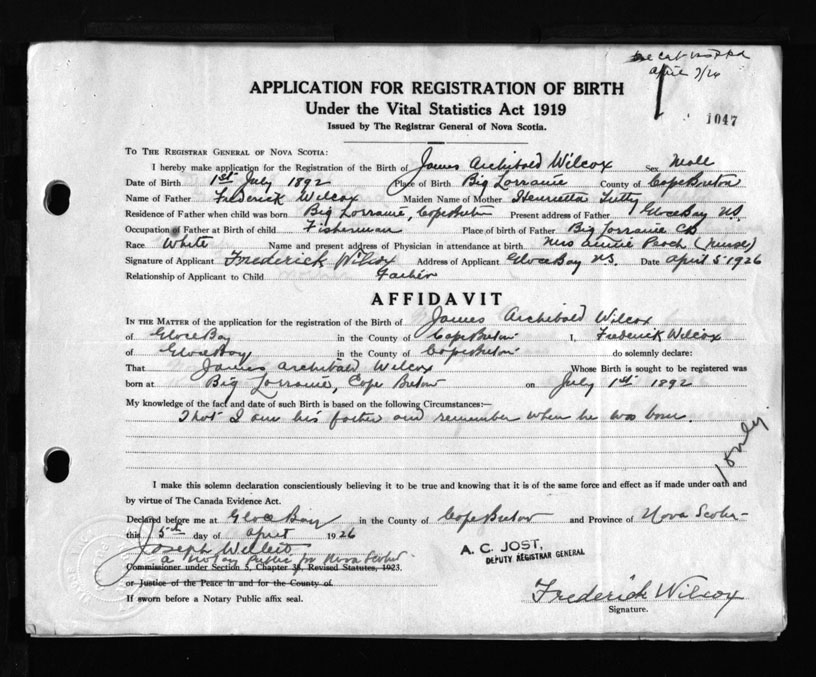 april 7/26
1047
APPLICATION FOR REGISTRATION OF BIRTH
Under the Vital Statistics Act 1919
Issued by The Registrar General of Nova Scotia.
TO THE REGISTRAR GENERAL OF NOVA SCOTIA:
I hereby make application for the Registration of the Birth of James Archibald Wilcox Sex Male
Date of Birth 1st July 1892 Place of Birth Big Lorraine County of Cape Breton
Name of Father Frederick Wilcox Maiden Name of Mother Henrietta Tutty
Residence of Father when child was born Big Lorraine, Cape Breton Present address of Father Glace Bay N.S.
Occupation of Father at Birth of child Fisherman Place of birth of Father Big Lorraine CB
Race White Name and present address of Physician in attendance at birth Mrs Annie Peach (nurse)
Signature of Applicant Frederick Wilcox Address of Applicant Glace Bay N.S. Date April 5 1926
Relationship of Applicant to Child Father
AFFIDAVIT
IN THE MATTER of the application for the registration of the Birth of James Archibald Wilcox
of Glace Bay in the County of Cape Breton I, Frederick Wilcox
of Glace Bay in the County of Cape Breton do solemnly declare:
That James Archibald Wilcox Whose Birth is sought to be registered was
born at Big Lorraine, Cape Breton on July 1st 1892
My knowledge of the fact and date of such Birth is based on the following Circumstances:—
That I am his father and remember when he was born.
I make this solemn declaration conscientiously believing it to be true and knowing that it is of the same force and effect as if made under oath and
by virtue of The Canada Evidence Act.
Declared before me at Glace Bay in the County of Cape Breton and Province of Nova Scotia
this 5th day of April 1926
Joseph
a Notary Public for Nova Scotia
A. C. JOST,
DEPUTY REGISTRAR GENERAL
Commissioner under Section 5, Chapter 38, Revised Statutes, 1923.
or Justice of the Peace in and for the County of
If sworn before a Notary Public affix seal.
Frederick Wilcox
Signature.